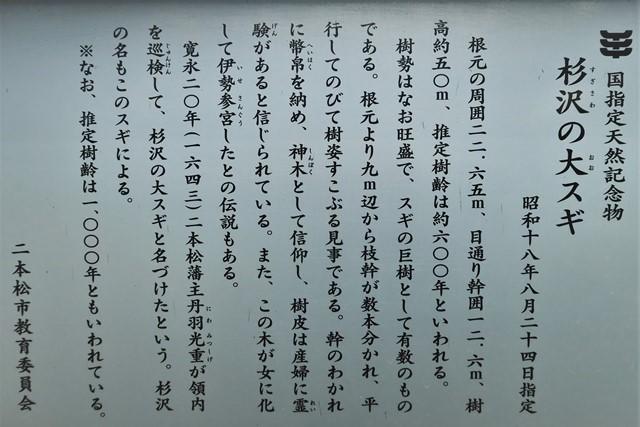 国指定天然記念物
杉沢の大スギ
昭和十八年八月二十四日指定
根元の周囲二二．六五m、目通り幹囲一二．六m、樹
高約五〇m、推定樹齢は約六〇〇年といわれる。
樹勢はなお旺盛で、スギの巨樹として有数のもの
である。根元より九m辺から枝幹が数本分かれ、平
行してのびて樹姿すこぶる見事である。幹のわかれ
に幣帛を納め、神木として信仰し、樹皮は産婦に霊
験があると信じられている。また、この木が女に化
して伊勢参宮したとの伝説もある。
寛永二〇年(一六四三)二本松藩主丹羽光重が領内
を巡検して、杉沢の大スギと名づけたという。杉沢
の名もこのスギによる。
※なお、推定樹齢は一、〇〇〇年ともいわれている。
二本松市教育委員会